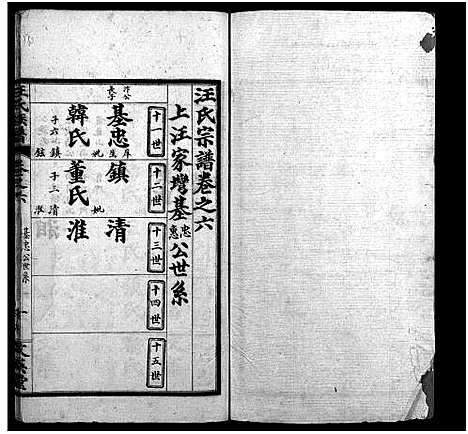 汪氏宗譜卷之六
上汪家塆基忠惠公世系
十一世
十二世
十三世
十四世
十五世
基忠
庠生
妣
韓氏
子六
鎮
鉉
鎮
妣
董氏
子三
清
淮
清
淮
汪氏宗譜
卷之六
基忠公世系
一